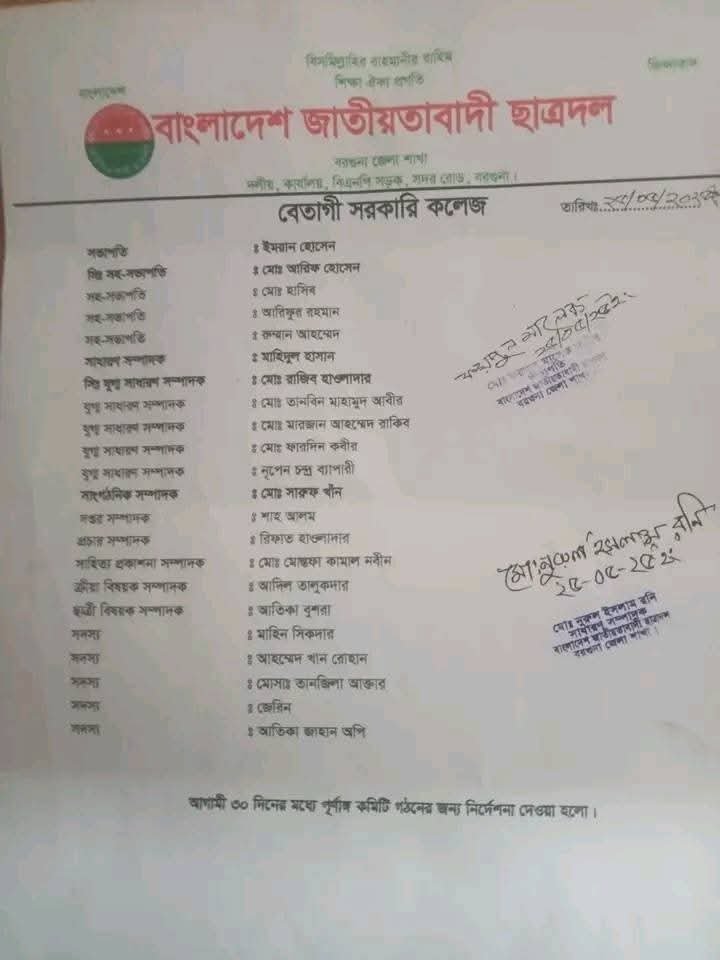 বিসমিল্লাহির রাহমানীর রাহিম
শিক্ষা ঐক্য প্রগতি
জিন্দাবাদ
বাংলাদেশ
বাংলাদেশ জাতীয়তাবাদী ছাত্রদল
বরগুনা জেলা শাখা
দলীয়, কার্যালয়, বিএনপি সড়ক, সদর রোড, বরগুনা।
বেতাগী সরকারি কলেজ
তারিখঃ
সভাপতি ঃ ইমরান হোসেন
সিঃ সহ-সভাপতি ঃ মোঃ আরিফ হোসেন
সহ-সভাপতি ঃ মোঃ হাসিব
সহ-সভাপতি ঃ আরিফুর রহমান
সহ-সভাপতি ঃ রুম্মান আহম্মেদ
সাধারণ সম্পাদক ঃ মাহিদুল হাসান
সিঃ যুগ্ম সাধারণ সম্পাদক ঃ মোঃ রাজিব হাওলাদার
যুগ্ম সাধারণ সম্পাদক ঃ মোঃ তানবিন মাহামুদ আবীর
যুগ্ম সাধারণ সম্পাদক ঃ মোঃ মারজান আহম্মেদ রাকিব
যুগ্ম সাধারণ সম্পাদক ঃ মোঃ ফারদিন কবীর
যুগ্ম সাধারণ সম্পাদক ঃ নৃপেন চন্দ্র ব্যাপারী
সাংগঠনিক সম্পাদক ঃ মোঃ মারুফ খাঁন
দপ্তর সম্পাদক ঃ শাহ আলম
প্রচার সম্পাদক ঃ রিফাত হাওলাদার
সাহিত্য প্রকাশনা সম্পাদক ঃ মোঃ মোস্তফা কামাল নবীন
ক্রীয়া বিষয়ক সম্পাদক ঃ আদিল তালুকদার
ছাত্রী বিষয়ক সম্পাদক ঃ আতিকা বুশরা
সদস্য ঃ মাহিন সিকদার
সদস্য ঃ আহম্মেদ খান রোহান
সদস্য ঃ মোসাঃ তানজিলা আক্তার
সদস্য ঃ জেরিন
সদস্য ঃ আতিকা জাহান অপি
বাংলাদেশ জাতীয়তাবাদী
বরগুনা জেলা শাখা।
মোঃ নুরুল ইসলাম রনি
সাধারণ সম্পাদক
বাংলাদেশ জাতীয়তাবাদী ছাত্রদল
বরগুনা জেলা শাখা।
আগামী ৩০ দিনের মধ্যে পূর্ণাঙ্গ কমিটি গঠনের জন্য নির্দেশনা দেওয়া হলো।